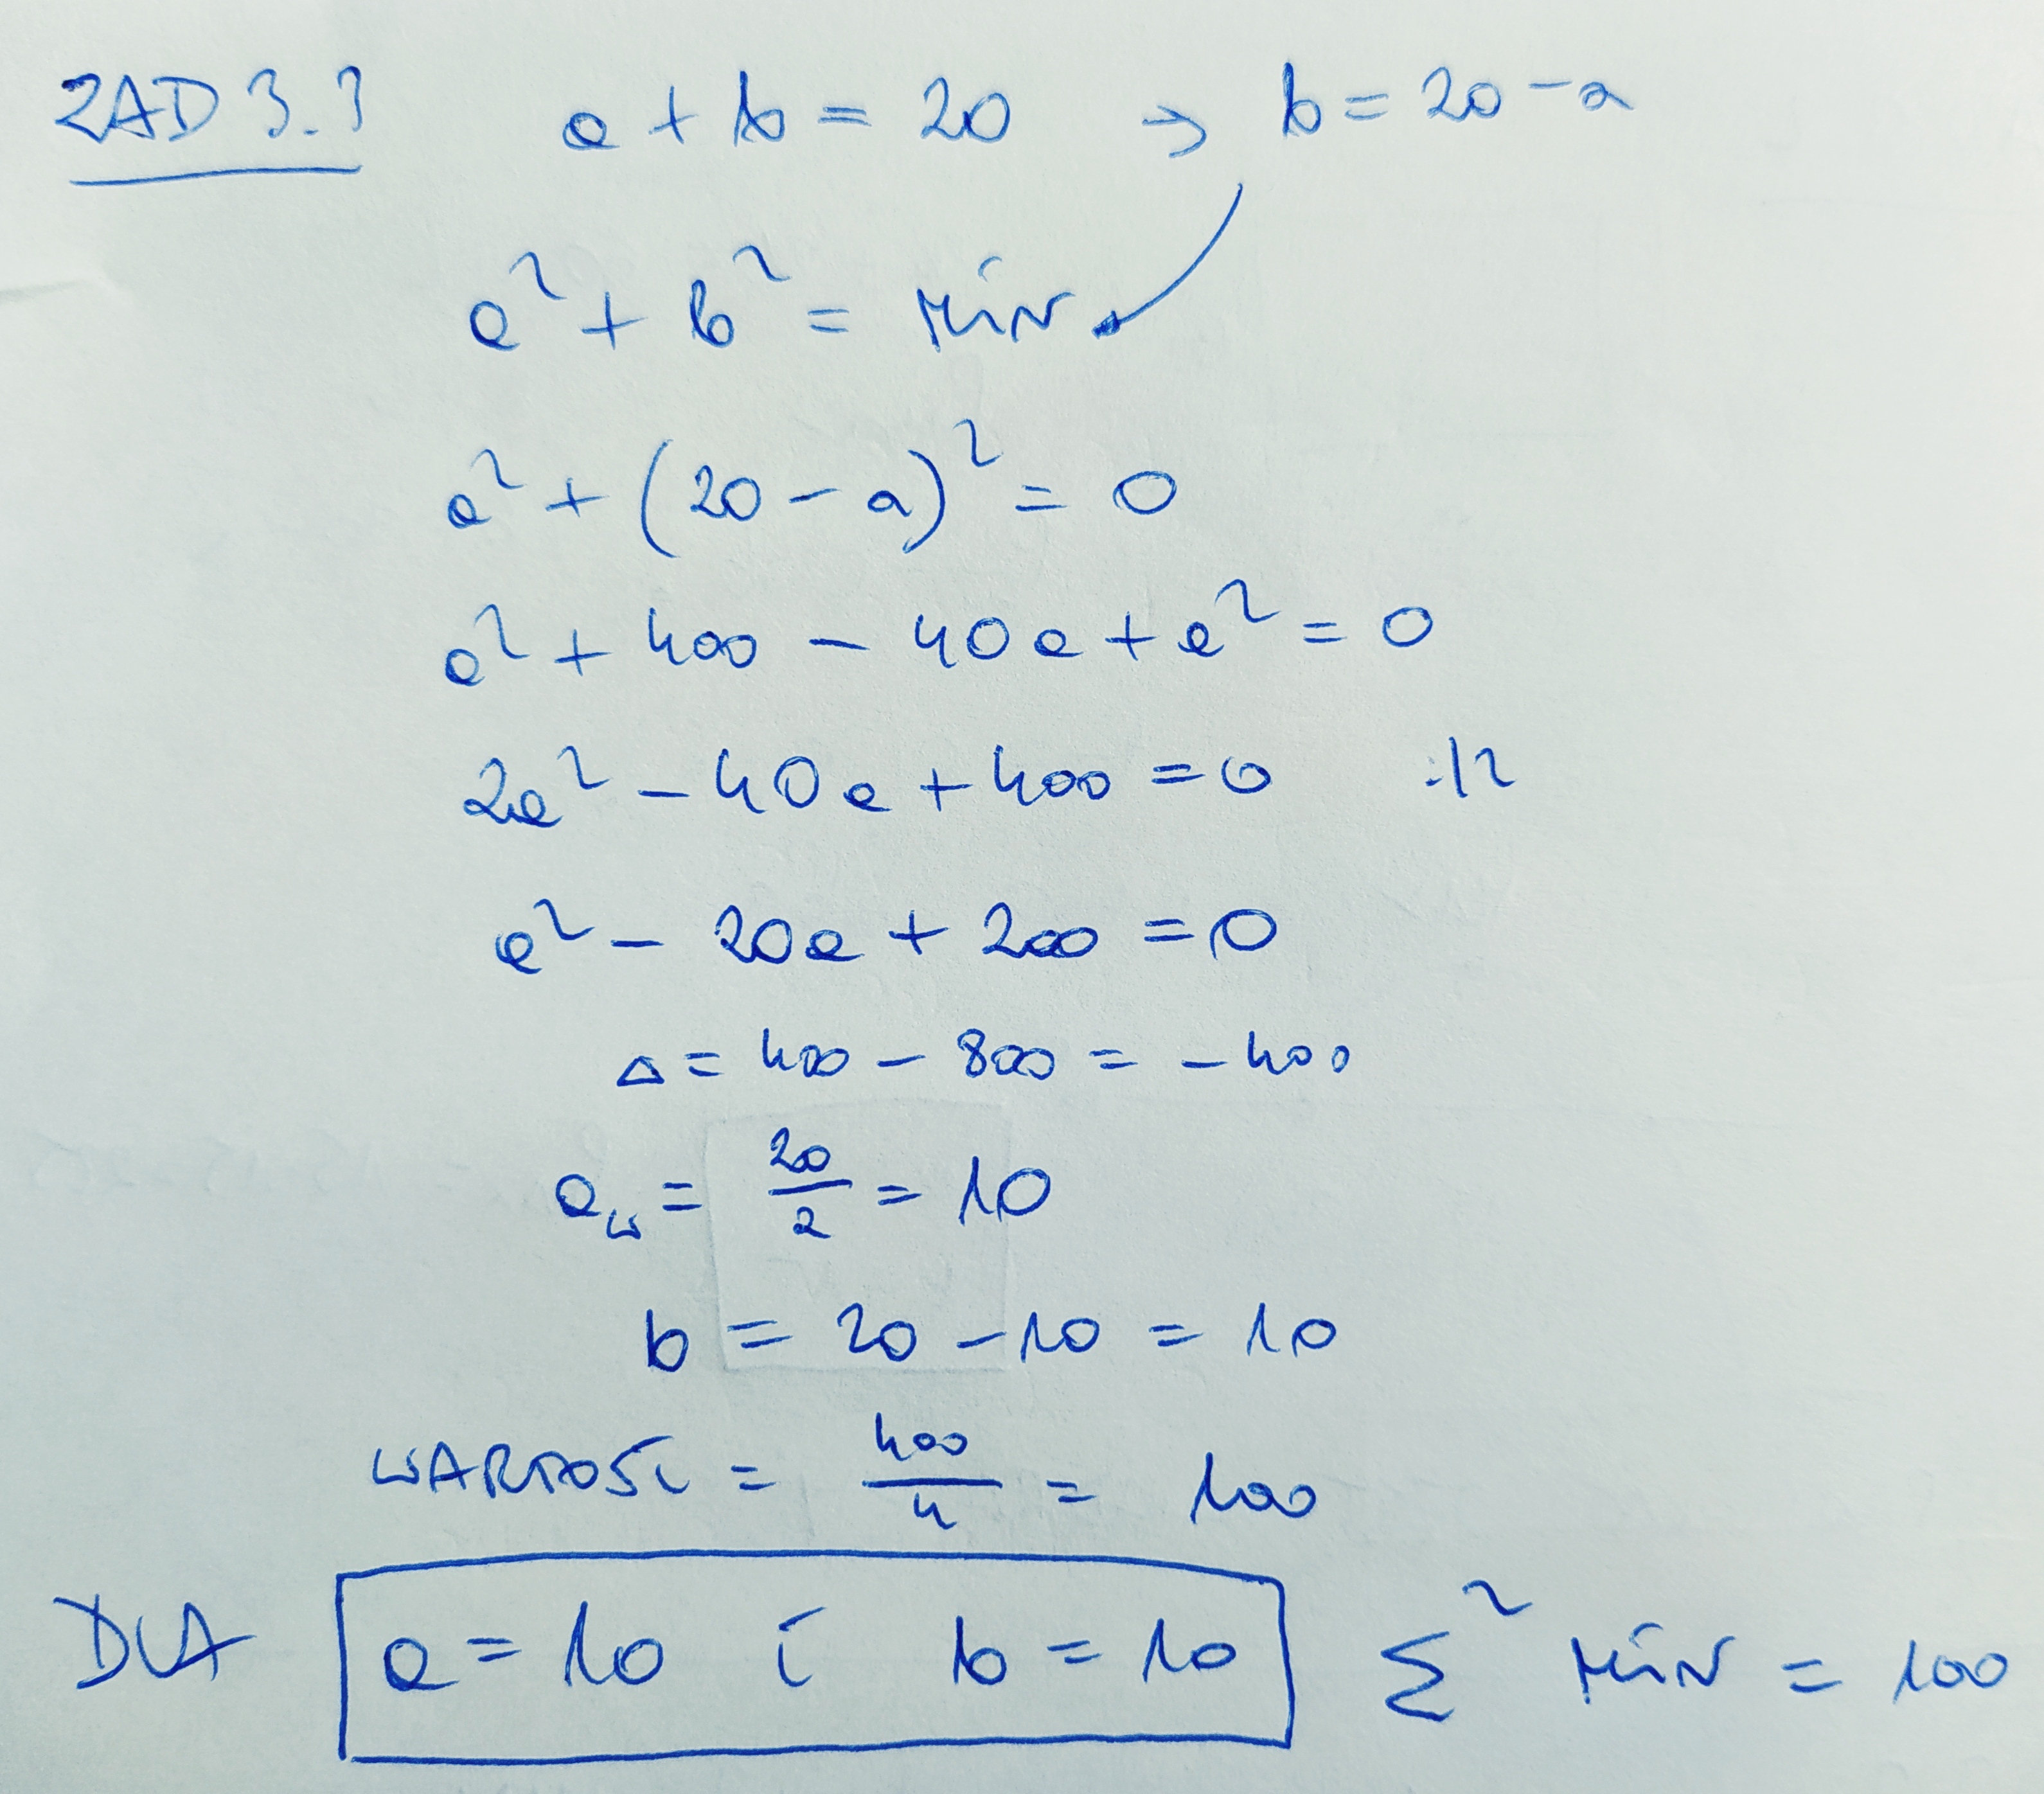 ZAD 3.3 a + b = 20 → b = 20 - a
a² + b² = MIN
a² + (20 - a)² = 0
a² + 400 - 40a + a² = 0
2a² - 40a + 400 = 0 :/2
a² - 20a + 200 = 0
Δ = 400 - 800 = -400
a_w = 20/2 = 10
b = 20 - 10 = 10
WARTOŚĆ = 400/4 = 100
DLA a = 10 i b = 10 Σ² MIN = 100